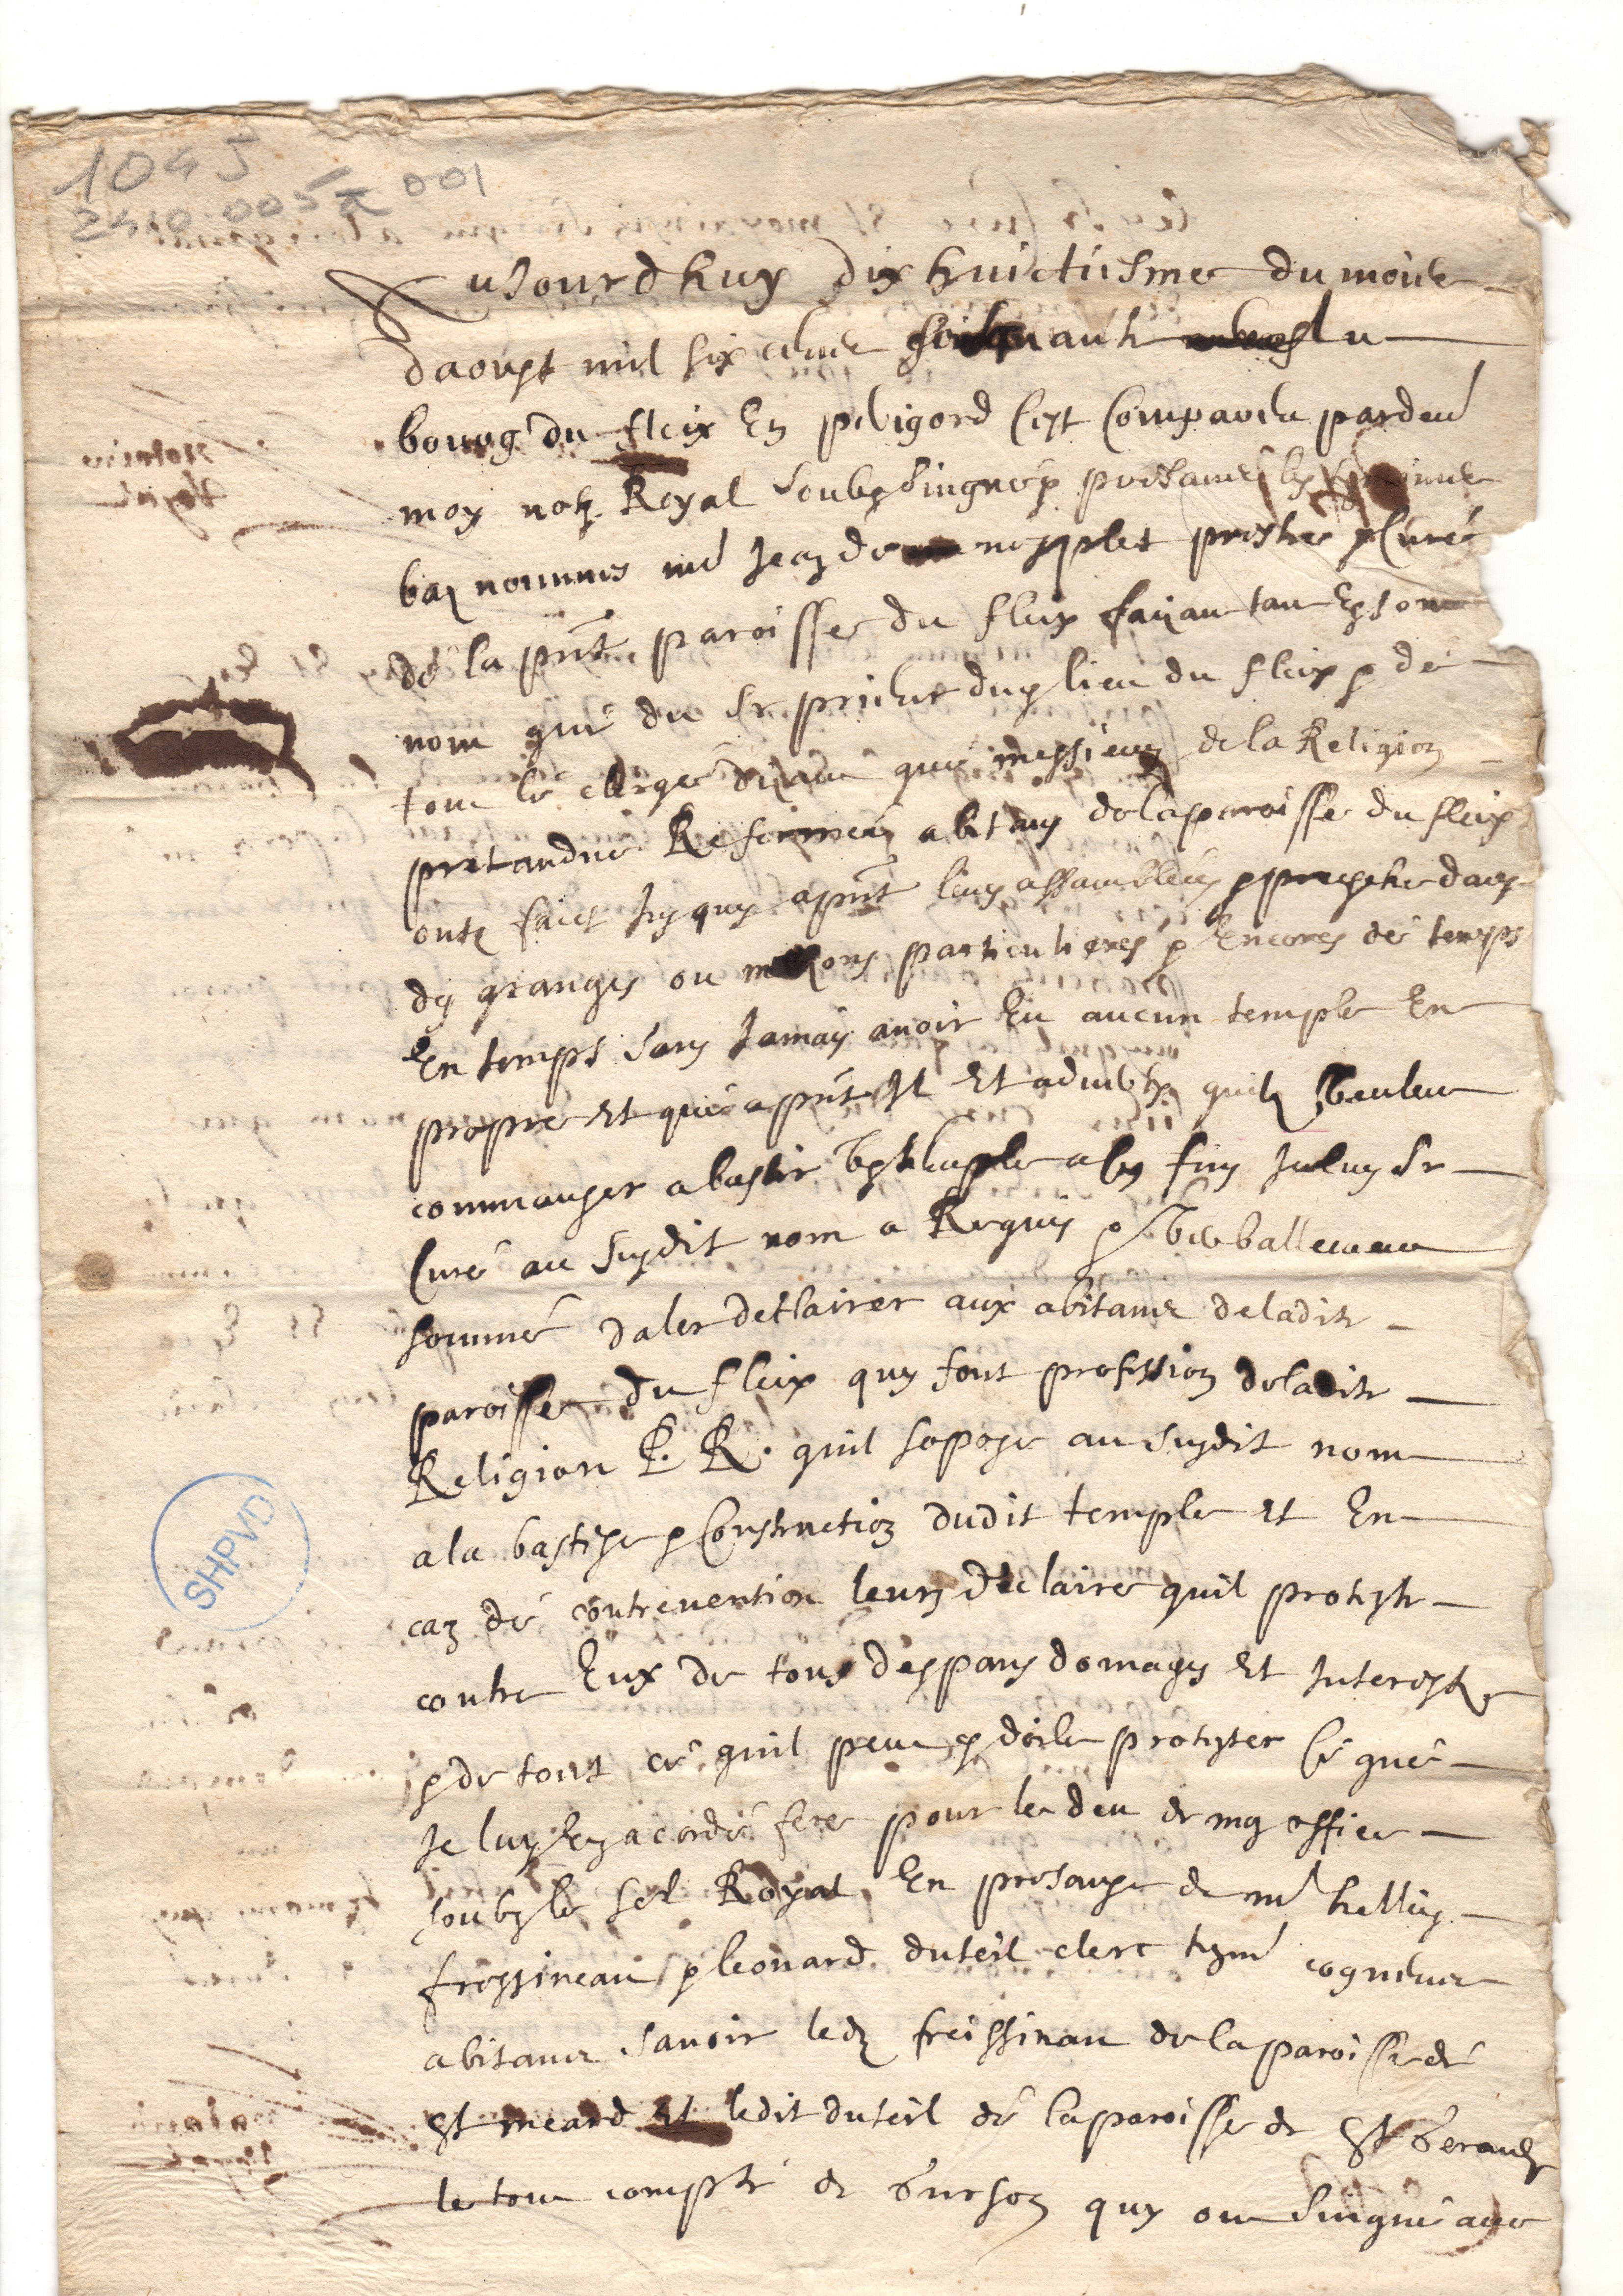 1045
2410 005 A 001
Aujourdhuy dix huictiesme du mois
daoust mil six cens soixante au
bourg du fleix En perigord Cest Comparu pardevt
moy notre Royal soubz singné presans les
bas nommés me Jean de prestre & Curé
de la pnte paroisse du fleix faizant tan En son
nom que du Sr prieur du lieu du fleix & de
tout le clerge dizant que messieurs de la Religion
pretandue Reformée abitans de la paroisse du fleix
ont faict Jusques a pnt leurs assamblées & presche dans
des granges ou maisons particulieres & Encores de temps
En temps sans Jamais avoir Eu aucun temple En
propre Et que a pnt Il Et adverty quilz veulent
commanser a bastir ledit Sr
Curé au susdit nom a Requis & verballement
sommé daler declairer aux abitans de ladite
paroisse du fleix quy font profession de ladite
Religion P. R. quil sopose au susdit nom
a la bastise & Construction dudit temple Et En
cas de contrevention leurs declaire quil proteste
contre Eux de tous despans domages Et Interestz
& de tout ce quil peut & doibt protester Ce que
Je luy Ey acordé fere pour le deu de mon office
soubz le sel Royal En presance de me hellies
fressineau & leonard duteil clerc tesm cogneus
abitans savoir ledt freissinau de la paroisse de
St meard Et ledit duteil de la paroisse de St Geraud
le tout compté de Gurson quy ont singné avec
SHPVD